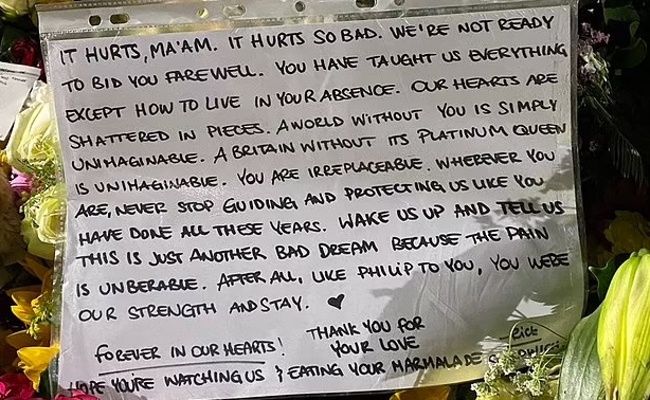 IT HURTS, MA'AM. IT HURTS SO BAD. WE'RE NOT READY
TO BID YOU FAREWELL. YOU HAVE TAUGHT US EVERYTHING
EXCEPT HOW TO LIVE IN YOUR ABSENCE. OUR HEARTS ARE
SHATTERED IN PIECES. A WORLD WITHOUT YOU IS SIMPLY
UNIMAGINABLE. A BRITAIN WITHOUT ITS PLATINUM QUEEN
IS UNIMAGINABLE. YOU ARE IRREPLACEABLE. WHEREVER YOU
ARE, NEVER STOP GUIDING AND PROTECTING US LIKE YOU
HAVE DONE ALL THESE YEARS. WAKE US UP AND TELL US
THIS IS JUST ANOTHER BAD DREAM BECAUSE THE PAIN
IS UNBERABLE. AFTER ALL, LIKE PHILIP TO YOU, YOU WERE
OUR STRENGTH AND STAY. ♥
FOREVER IN OUR HEARTS! THANK YOU FOR
YOUR LOVE
HOPE YOU'RE WATCHING US & EATING YOUR MARMALADE